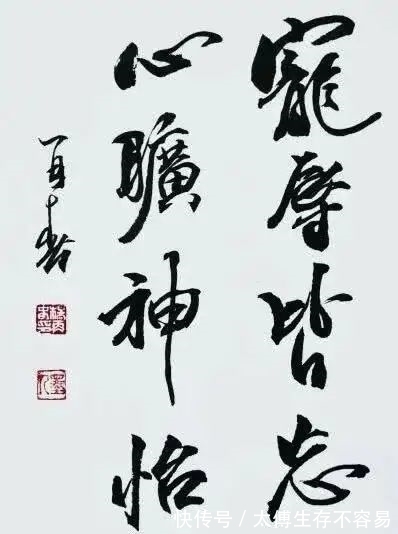 寵辱皆忘
心曠神怡
快传号/太傅生存不容易